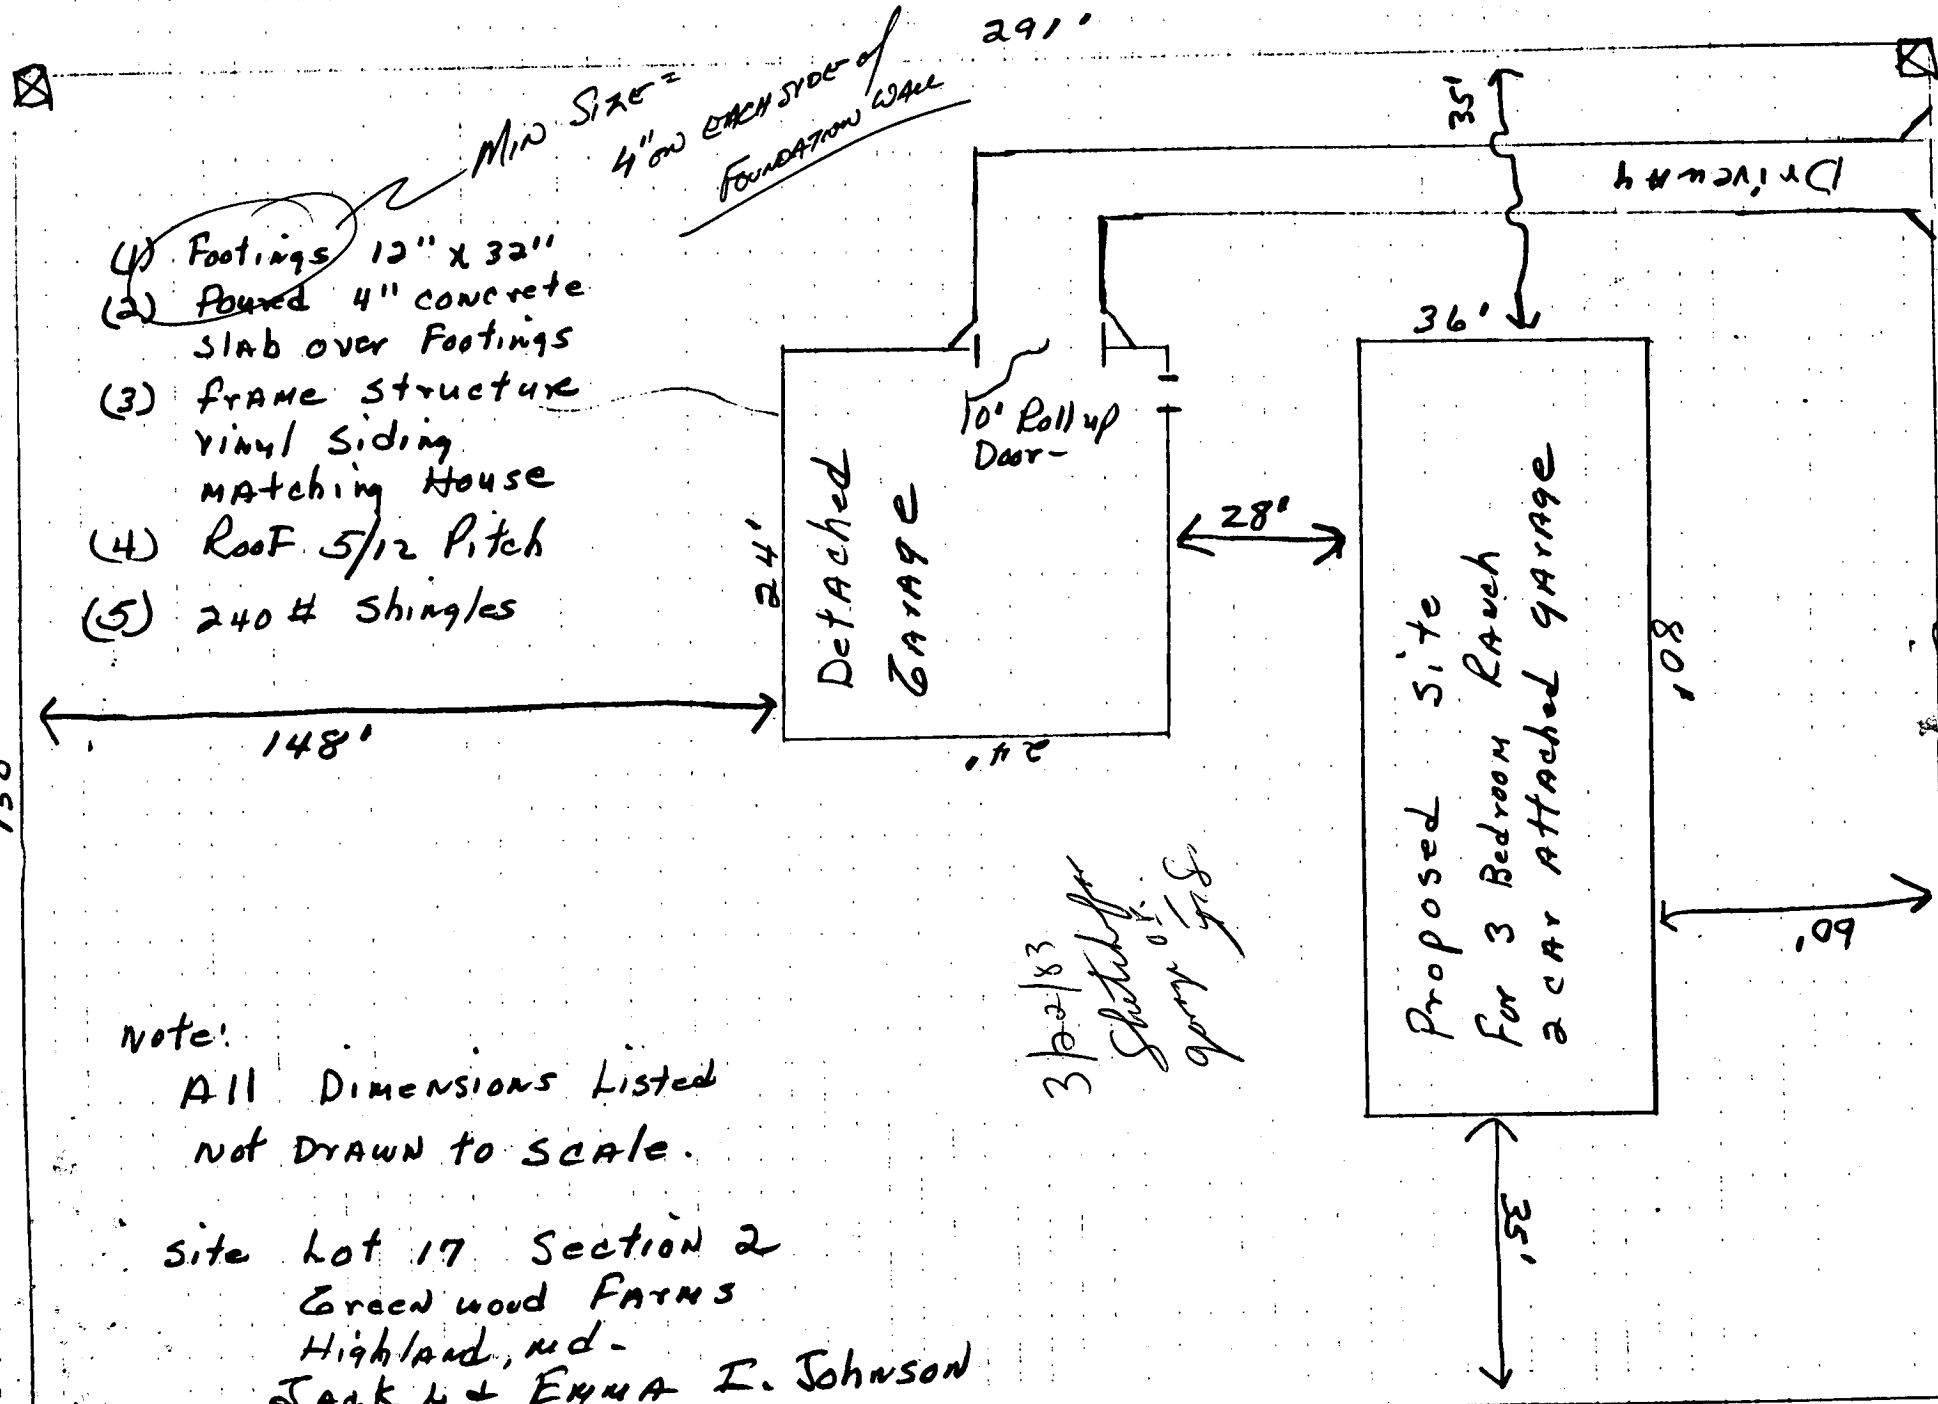 291'
Min Size =
4" on each side of
Foundation Wall
(1) Footings 12" x 32"
(2) Poured 4" concrete
slab over Footings
(3) frame structure
vinyl siding
matching House
(4) Roof 5/12 Pitch
(5) 240 # Shingles
35'
Driveway
36'
10' Roll up
Door-
Detached
Garage
24'
24'
28'
148'
150
Proposed site
For 3 Bedroom Ranch
2 car Attached garage
80'
60'
35'
3/22/83
Note:
All Dimensions Listed
not Drawn to scale.
site Lot 17 Section 2
Greenwood Farms
Highland, md-
Jack L & Emma I. Johnson